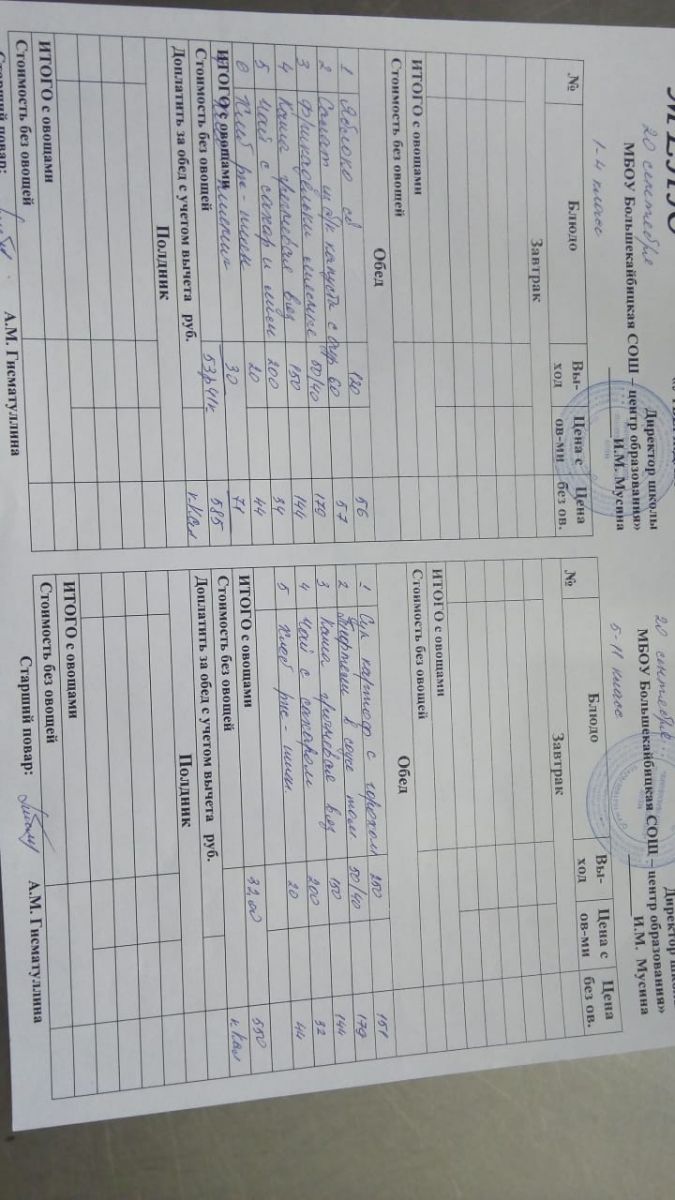 МЕНЮ
Директор школы
МБОУ Большекайбицкая СОШ – центр образования»
И.М. Мусина
20 сентября
1-4 класс
№ Блюдо Вы-ход Цена с ов-ми Цена без ов.
Завтрак
ИТОГО с овощами
Стоимость без овощей
Обед
1 Яблоко св 120 56
2 Салат из б/к капуста с 60 57
3 Фрикадельки 50/40 179
4 Каша гречневая вяз 150 144
5 Чай с сахар и лимон 200 34
6 Хлеб рж-пшен 20 44
ИТОГО с овощами 30 71
Стоимость без овощей 53р41к 585
Доплатить за обед с учетом вычета руб. к.Кал
Полдник
ИТОГО с овощами
Стоимость без овощей
Старший повар: А.М. Гисматуллина
Директор школы
МБОУ Большекайбицкая СОШ – центр образования»
И.М. Мусина
20 сентября
5-11 класс
№ Блюдо Вы-ход Цена с ов-ми Цена без ов.
Завтрак
ИТОГО с овощами
Стоимость без овощей
Обед
1 Суп картоф с горохом 250 151
2 в соусе том 50/40 179
3 Каша гречневая вяз 150 144
4 Чай с сахаром 200 32
5 Хлеб рж-пшен. 20 44
ИТОГО с овощами 32,00 550
Стоимость без овощей к Кал
Доплатить за обед с учетом вычета руб.
Полдник
ИТОГО с овощами
Стоимость без овощей
Старший повар: А.М. Гисматуллина